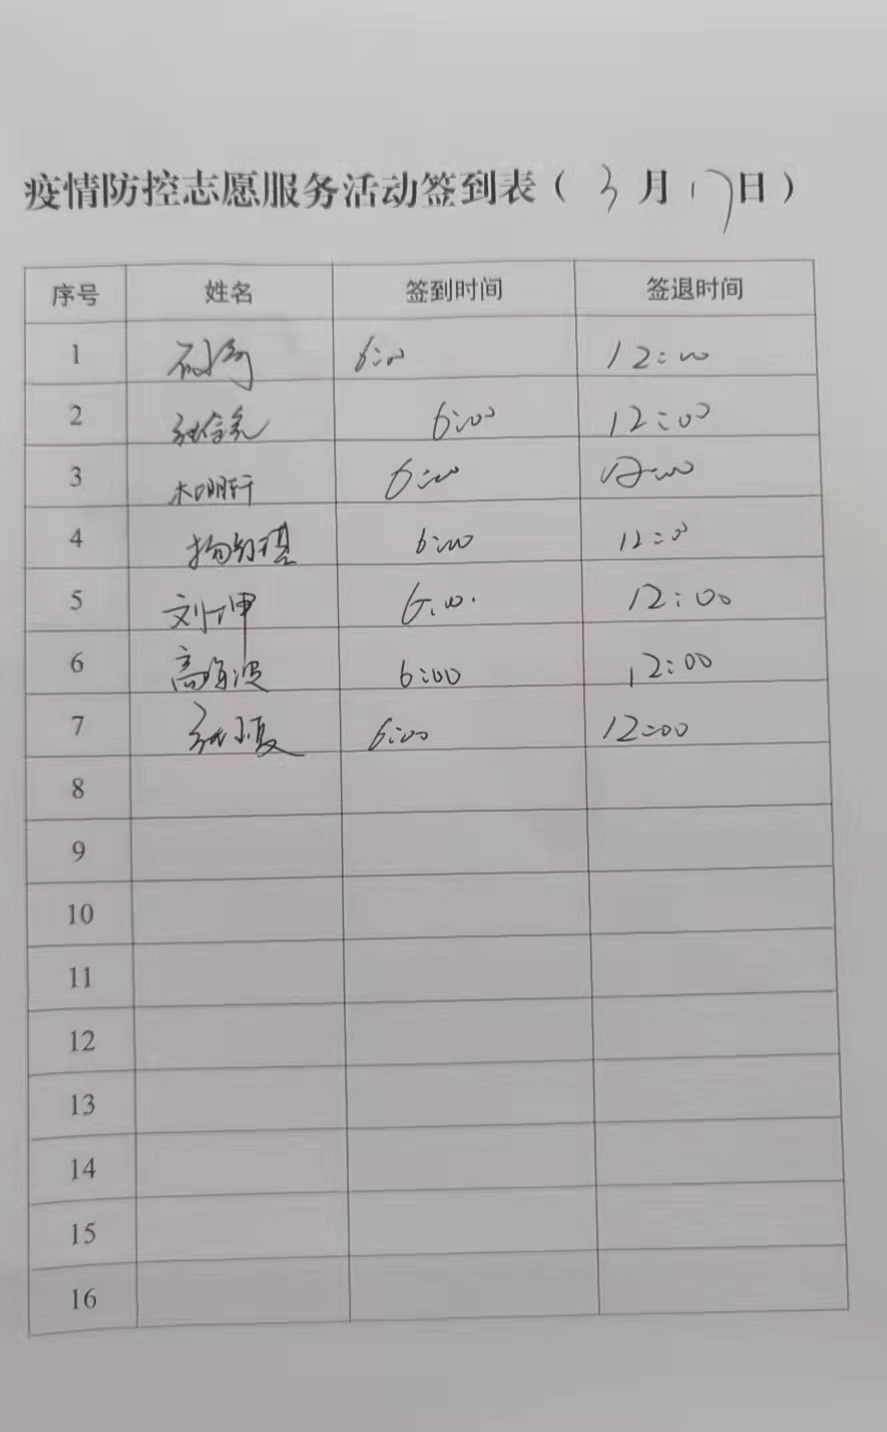 疫情防控志愿服务活动签到表（3月17日）
序号 姓名 签到时间 签退时间
1 6:00 12:00
2 6:00 12:00
3 6:00 12:00
4 6:00 12:00
5 刘坤 6:00. 12:00
6 高海波 6:00 12:00
7 张小夏 6:00 12:00
8
9
10
11
12
13
14
15
16